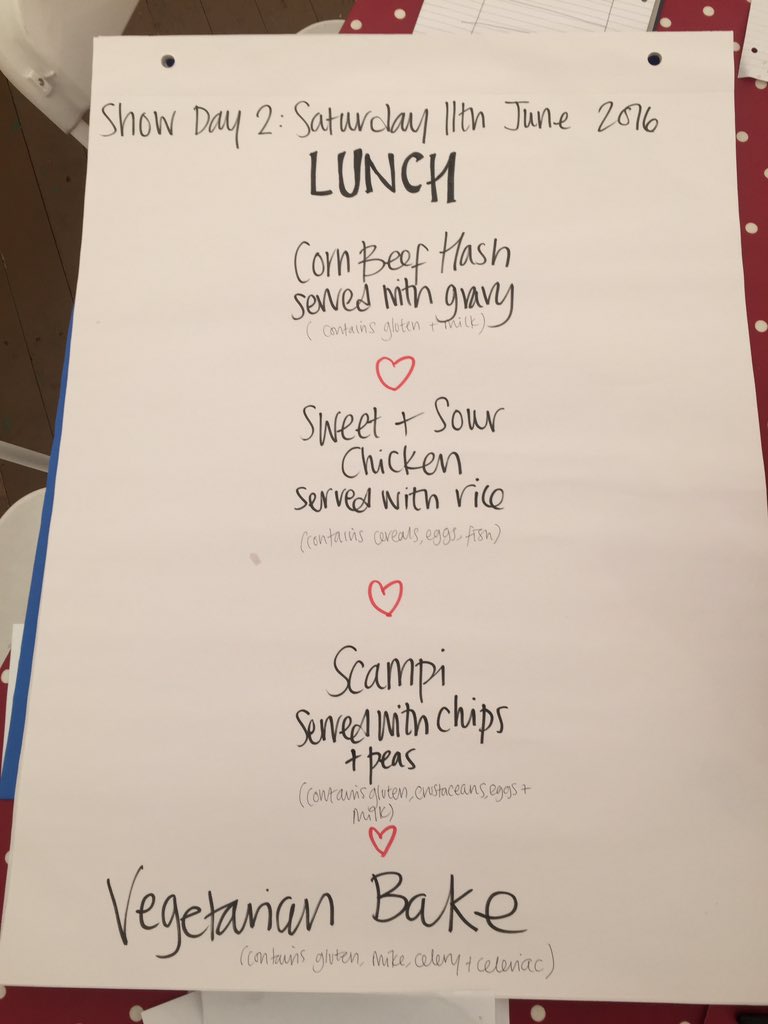 Show Day 2: Saturday 11th June 2016
LUNCH
Corn Beef Hash
served with gravy
(contains gluten + milk)
Sweet + Sour
Chicken
served with rice
(contains cereals, eggs, fish)
Scampi
served with chips
+ peas
(contains gluten, crustaceans, eggs +
milk)
Vegetarian Bake
(contains gluten, mike, celery + celeriac)